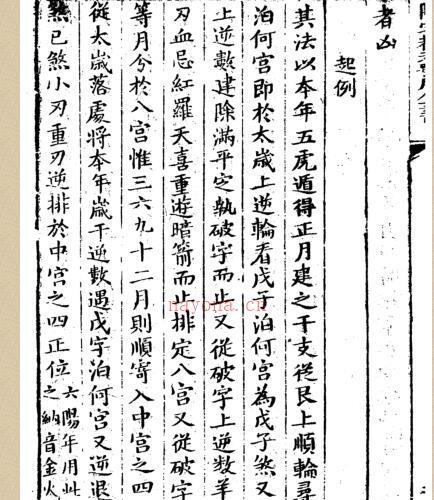 者凶
起例
其法以本年五虎遁得正月建之干支從艮上順輪尋
泊何宮即於太歲上逆輪看戊子泊何宮為戊子煞又
上逆數建除滿平定執破字而止又從破字上逆數羊
刃血忌紅羅天喜重遊暗箭而止排定八宮又從破字
等月分於八宮惟三六九十二月則順寄入中宮之四
從太歲落處將本年歲干逆數遇戊字泊何宮又逆退
煞已煞小刃重刃逆排於中宮之四正位
六陽年月此
之納音金火
nayona.cn